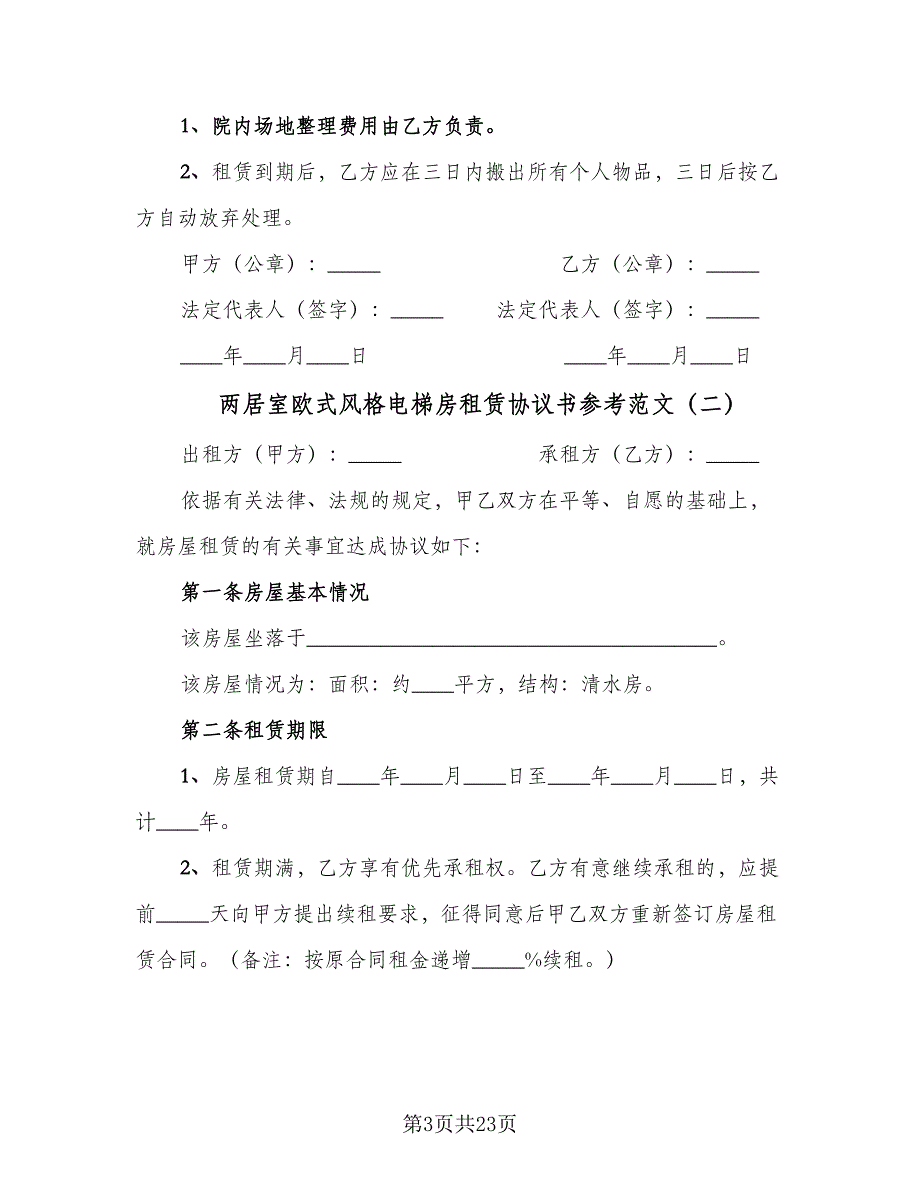 1、院内场地整理费用由乙方负责。
2、租赁到期后，乙方应在三日内搬出所有个人物品，三日后按乙
方自动放弃处理。
甲方（公章）：_____ 乙方（公章）：_____
法定代表人（签字）：_____ 法定代表人（签字）：_____
____年____月____日 ____年____月____日
两居室欧式风格电梯房租赁协议书参考范文（二）
出租方（甲方）：_____ 承租方（乙方）：_____
依据有关法律、法规的规定，甲乙双方在平等、自愿的基础上，
就房屋租赁的有关事宜达成协议如下：
第一条房屋基本情况
该房屋坐落于_______________________________________。
该房屋情况为：面积：约____平方，结构：清水房。
第二条租赁期限
1、房屋租赁期自____年____月____日至____年____月____日，共
计____年。
2、租赁期满，乙方享有优先承租权。乙方有意继续承租的，应提
前_____天向甲方提出续租要求，征得同意后甲乙双方重新签订房屋租
赁合同。（备注：按原合同租金递增_____%续租。）
第3页共23页